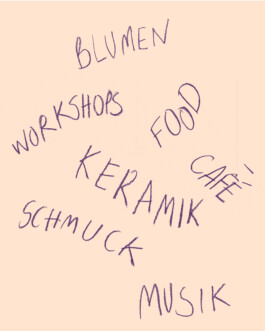 BLUMEN
WORKSHOPS
FOOD
CAFÈ
KERAMIK
SCHMUCK
MUSIK